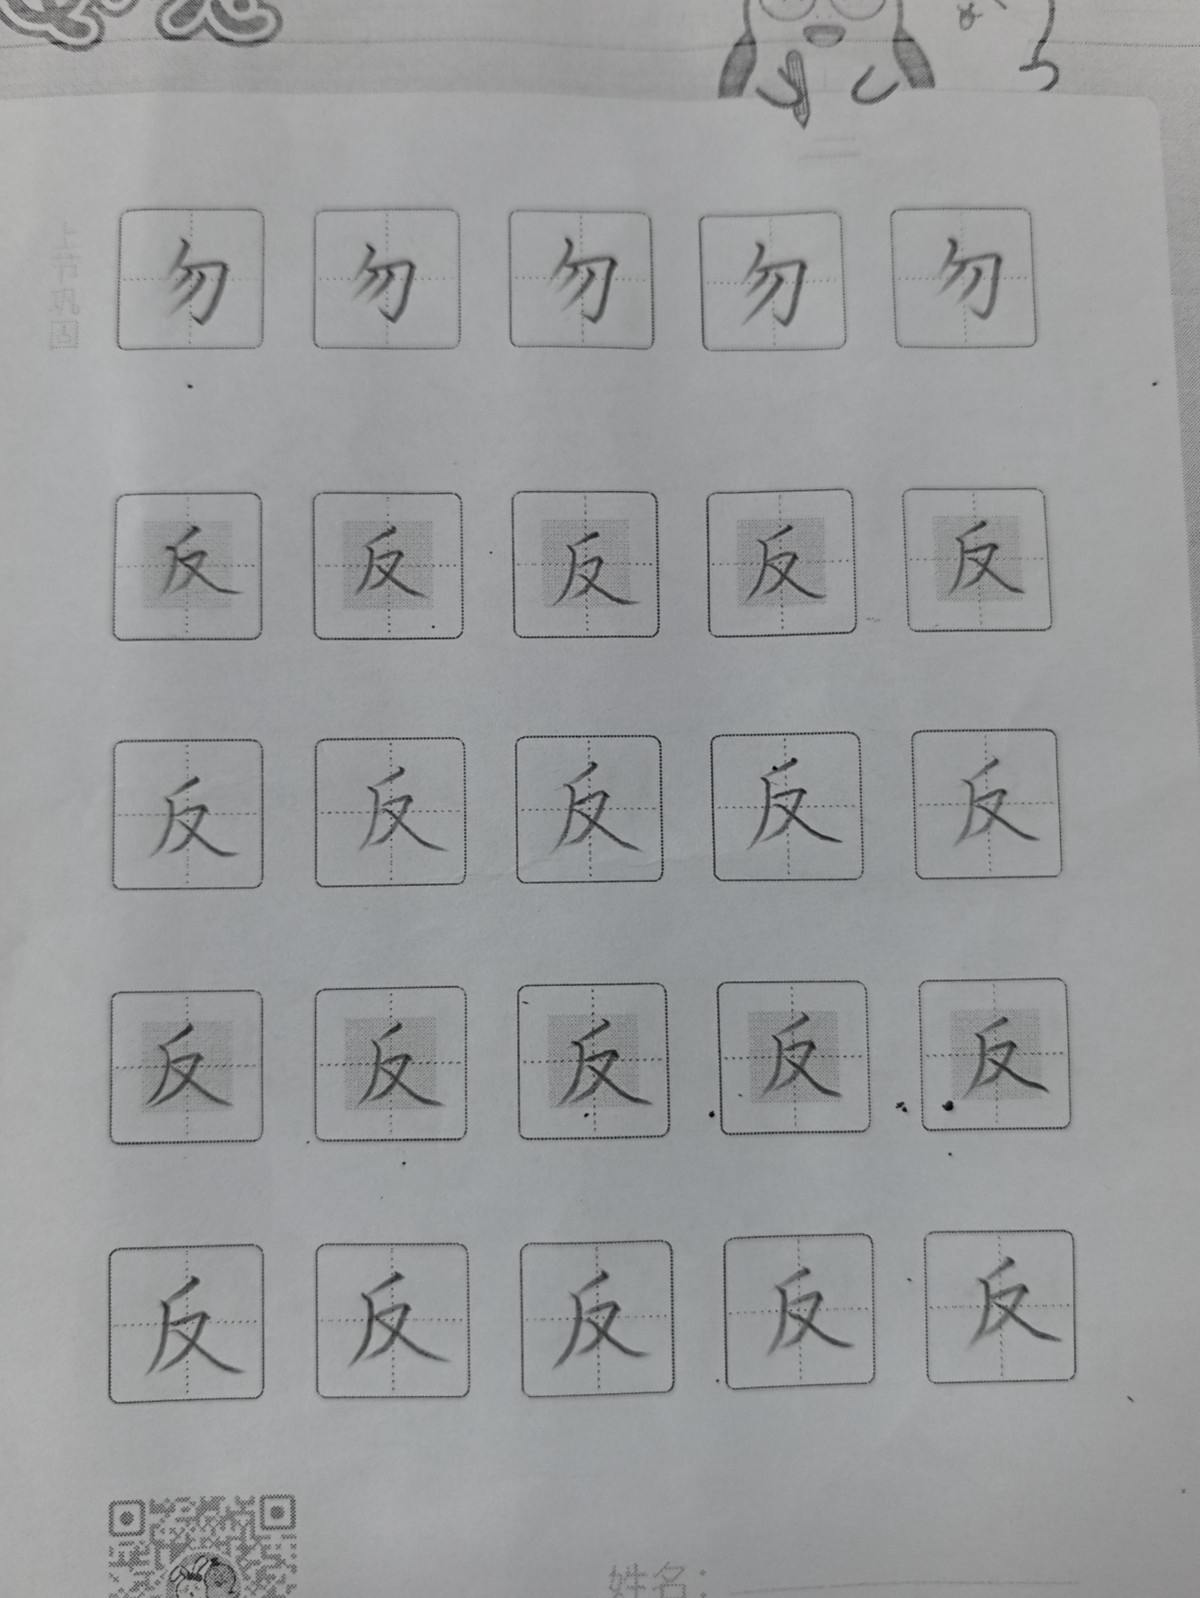 上节巩固
勿 勿 勿 勿 勿
反 反 反 反 反
反 反 反 反 反
反 反 反 反 反
反 反 反 反 反
姓名：